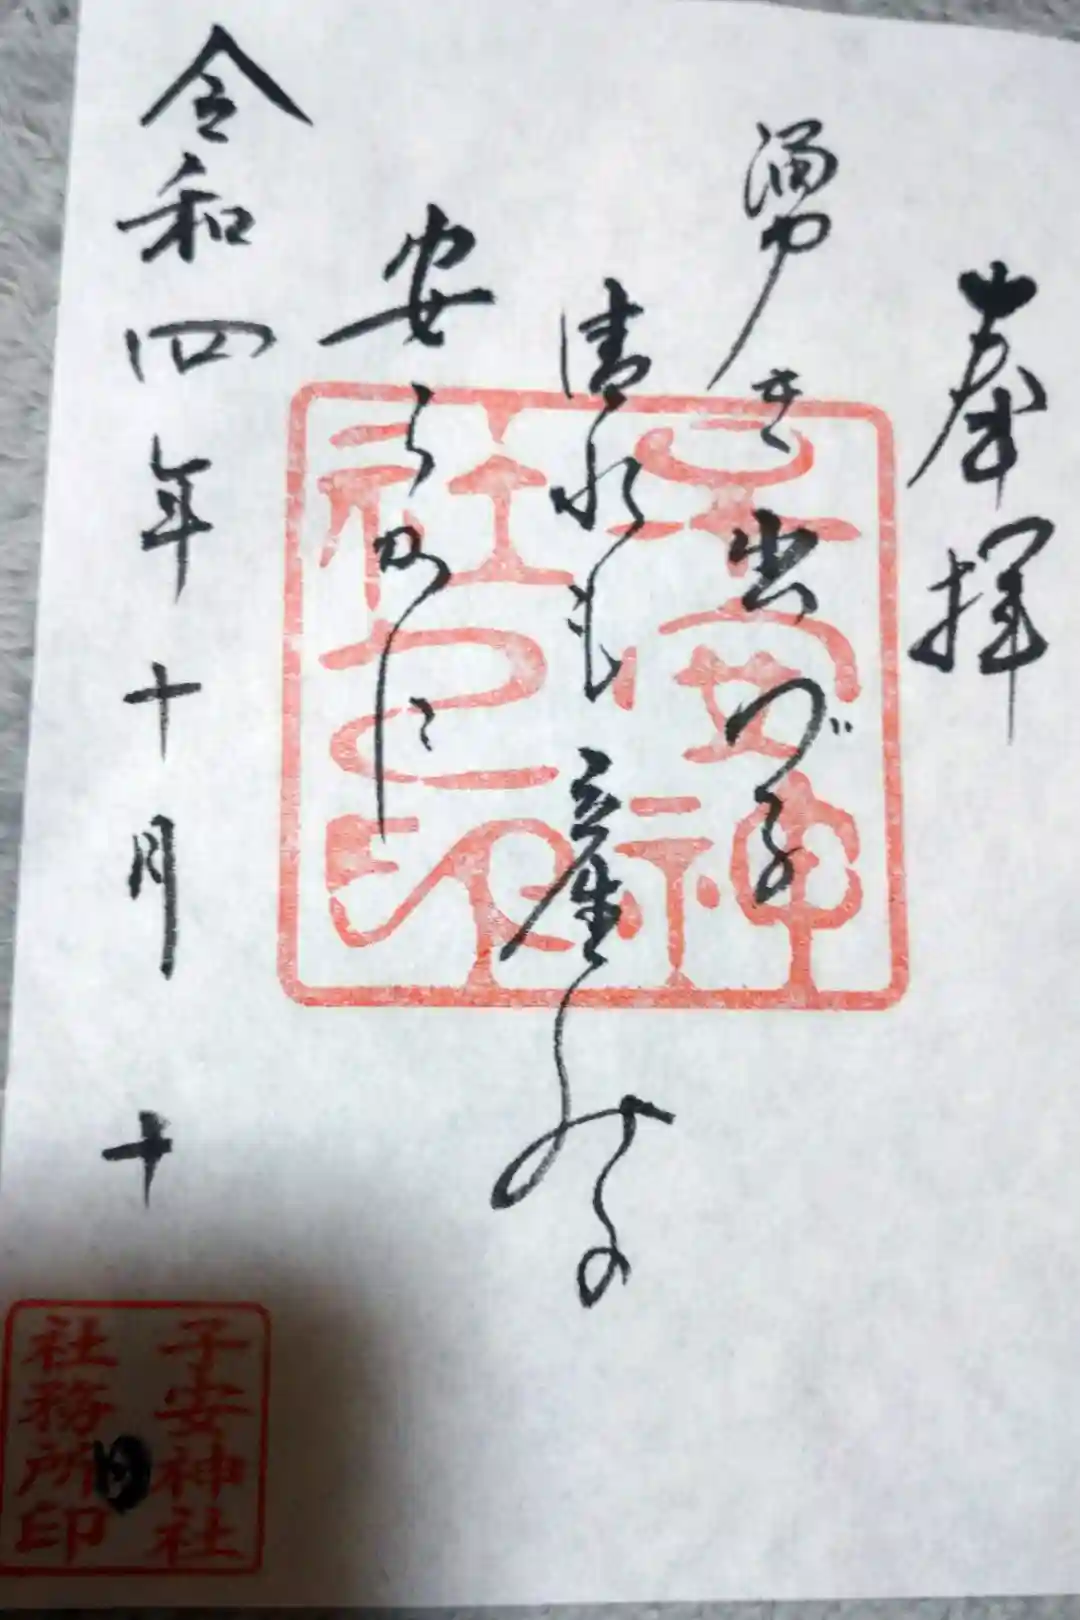 奉拝
湧き出づる
清水も産
安らかに
令和四年十月十日
子安神
社之印
子安神社
社務所印